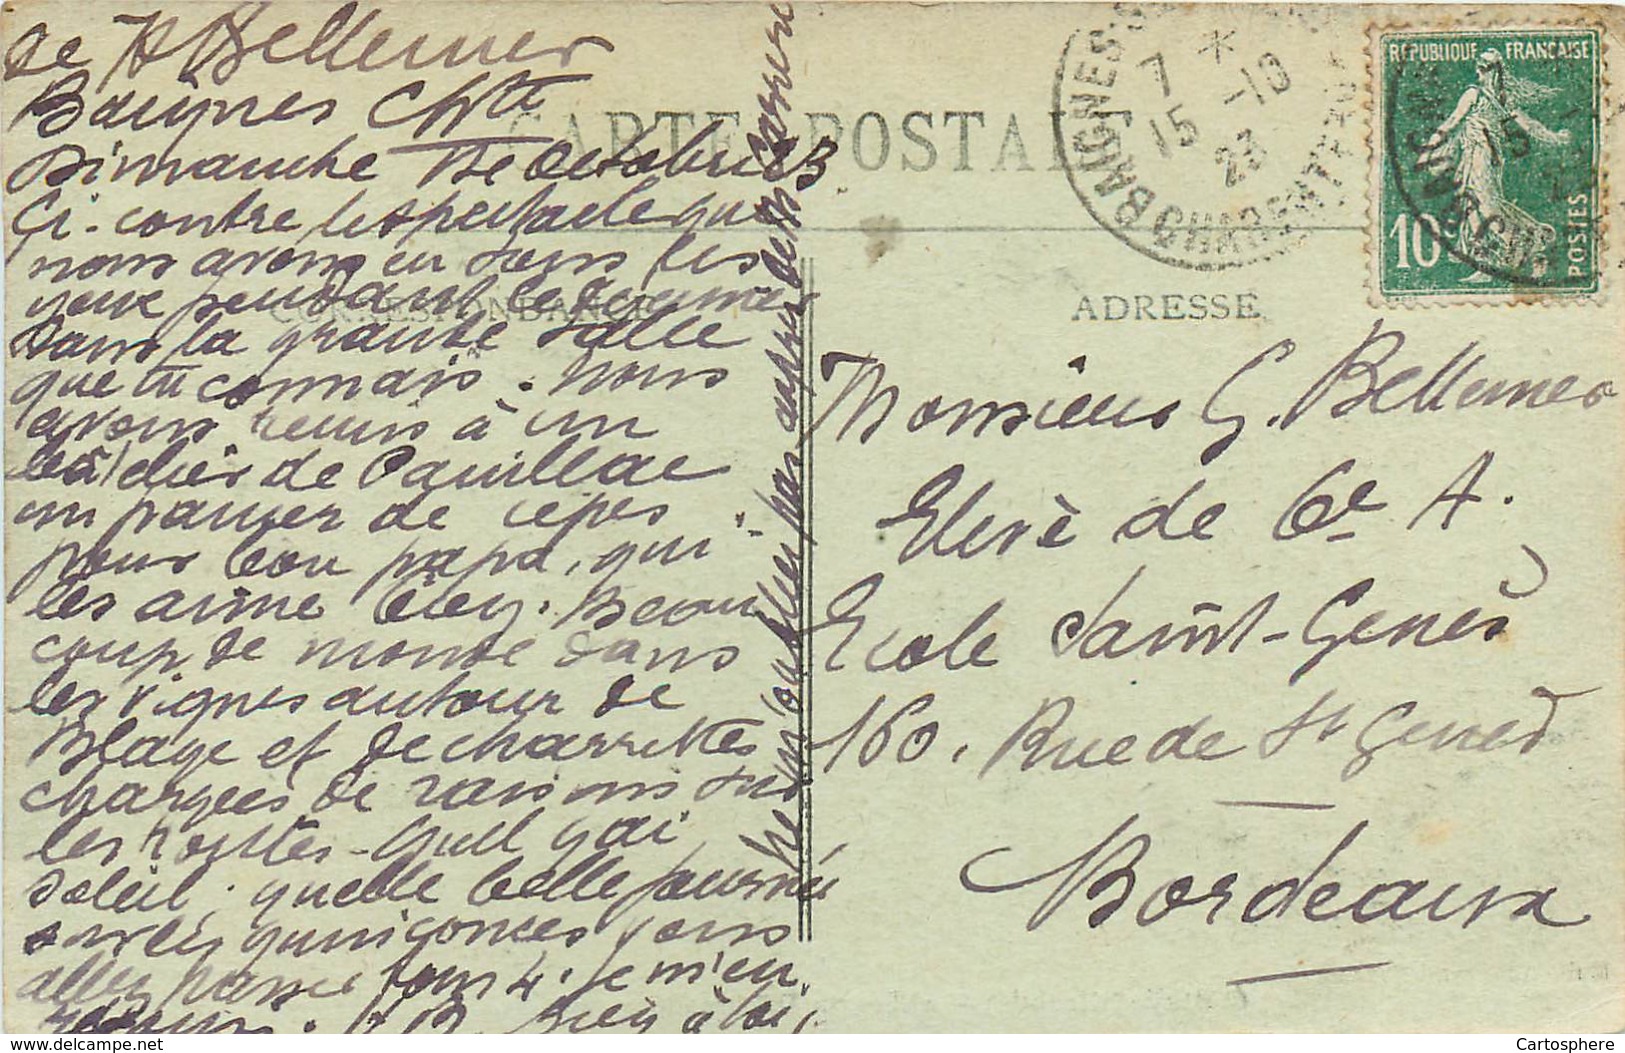 de H Bellemer
Baignes Chte
Dimanche 7 de Octobre 23
Ci-contre le spectacle que
nous avons eu sous les
yeux pendant le déjeuner
dans la grande salle
que tu connais. Nous
avons remis à un
de Pauillac
un panier de cèpes
pour bon papa, qui
les aime bien. Beau
coup de monde dans
les vignes autour de
Blaye et de charrettes
chargées de raisins sur
les routes. Quel gai
soleil, quelle belle journée
sur les quinconces vous
allez passer tous 4. Je m'en
réjouis. Bien à toi,
Ne m'oubliez pas auprès de
CARTE POSTALE
CORRESPONDANCE
ADRESSE
BAIGNES
CHARENTE
7 * 15 -10 23
REPUBLIQUE FRANÇAISE
10c
POSTES
Monsieur G. Bellemer
Elève de 6e A.
Ecole Saint-Genès
160, Rue de St Genès
Bordeaux
www.delcampe.net
Cartosphere